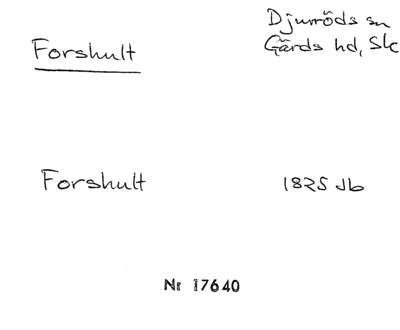 Forshult
Djurröds sn
Gärds hd, Sk
Forshult
1825 Jb
Nr 17640